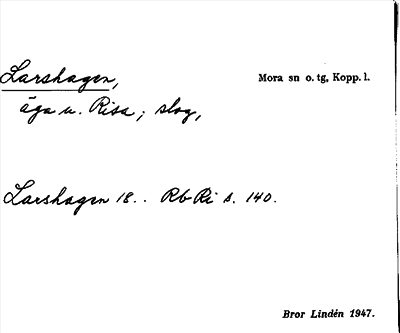 Larshagen,
Mora sn o. tg, Kopp. l.
äga u. Risa; slog,
Larshagen 18.. Rb Ri s. 140.
Bror Lindén 1947.